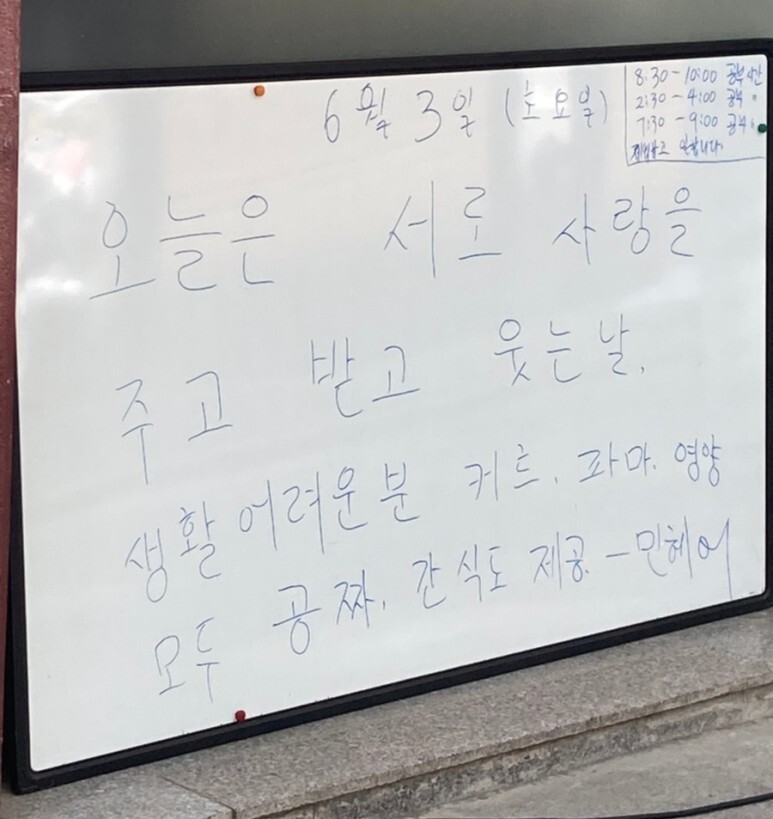 6월 3일 (토요일)
8:30-10:00 공부시간
2:30-4:00 공부 "
7:30-9:00 공부 "
오늘은 서로 사랑을
주고 받고 웃는날.
생활 어려운분 커트. 파마. 영양
모두 공짜. 간식도 제공 - 민헤어